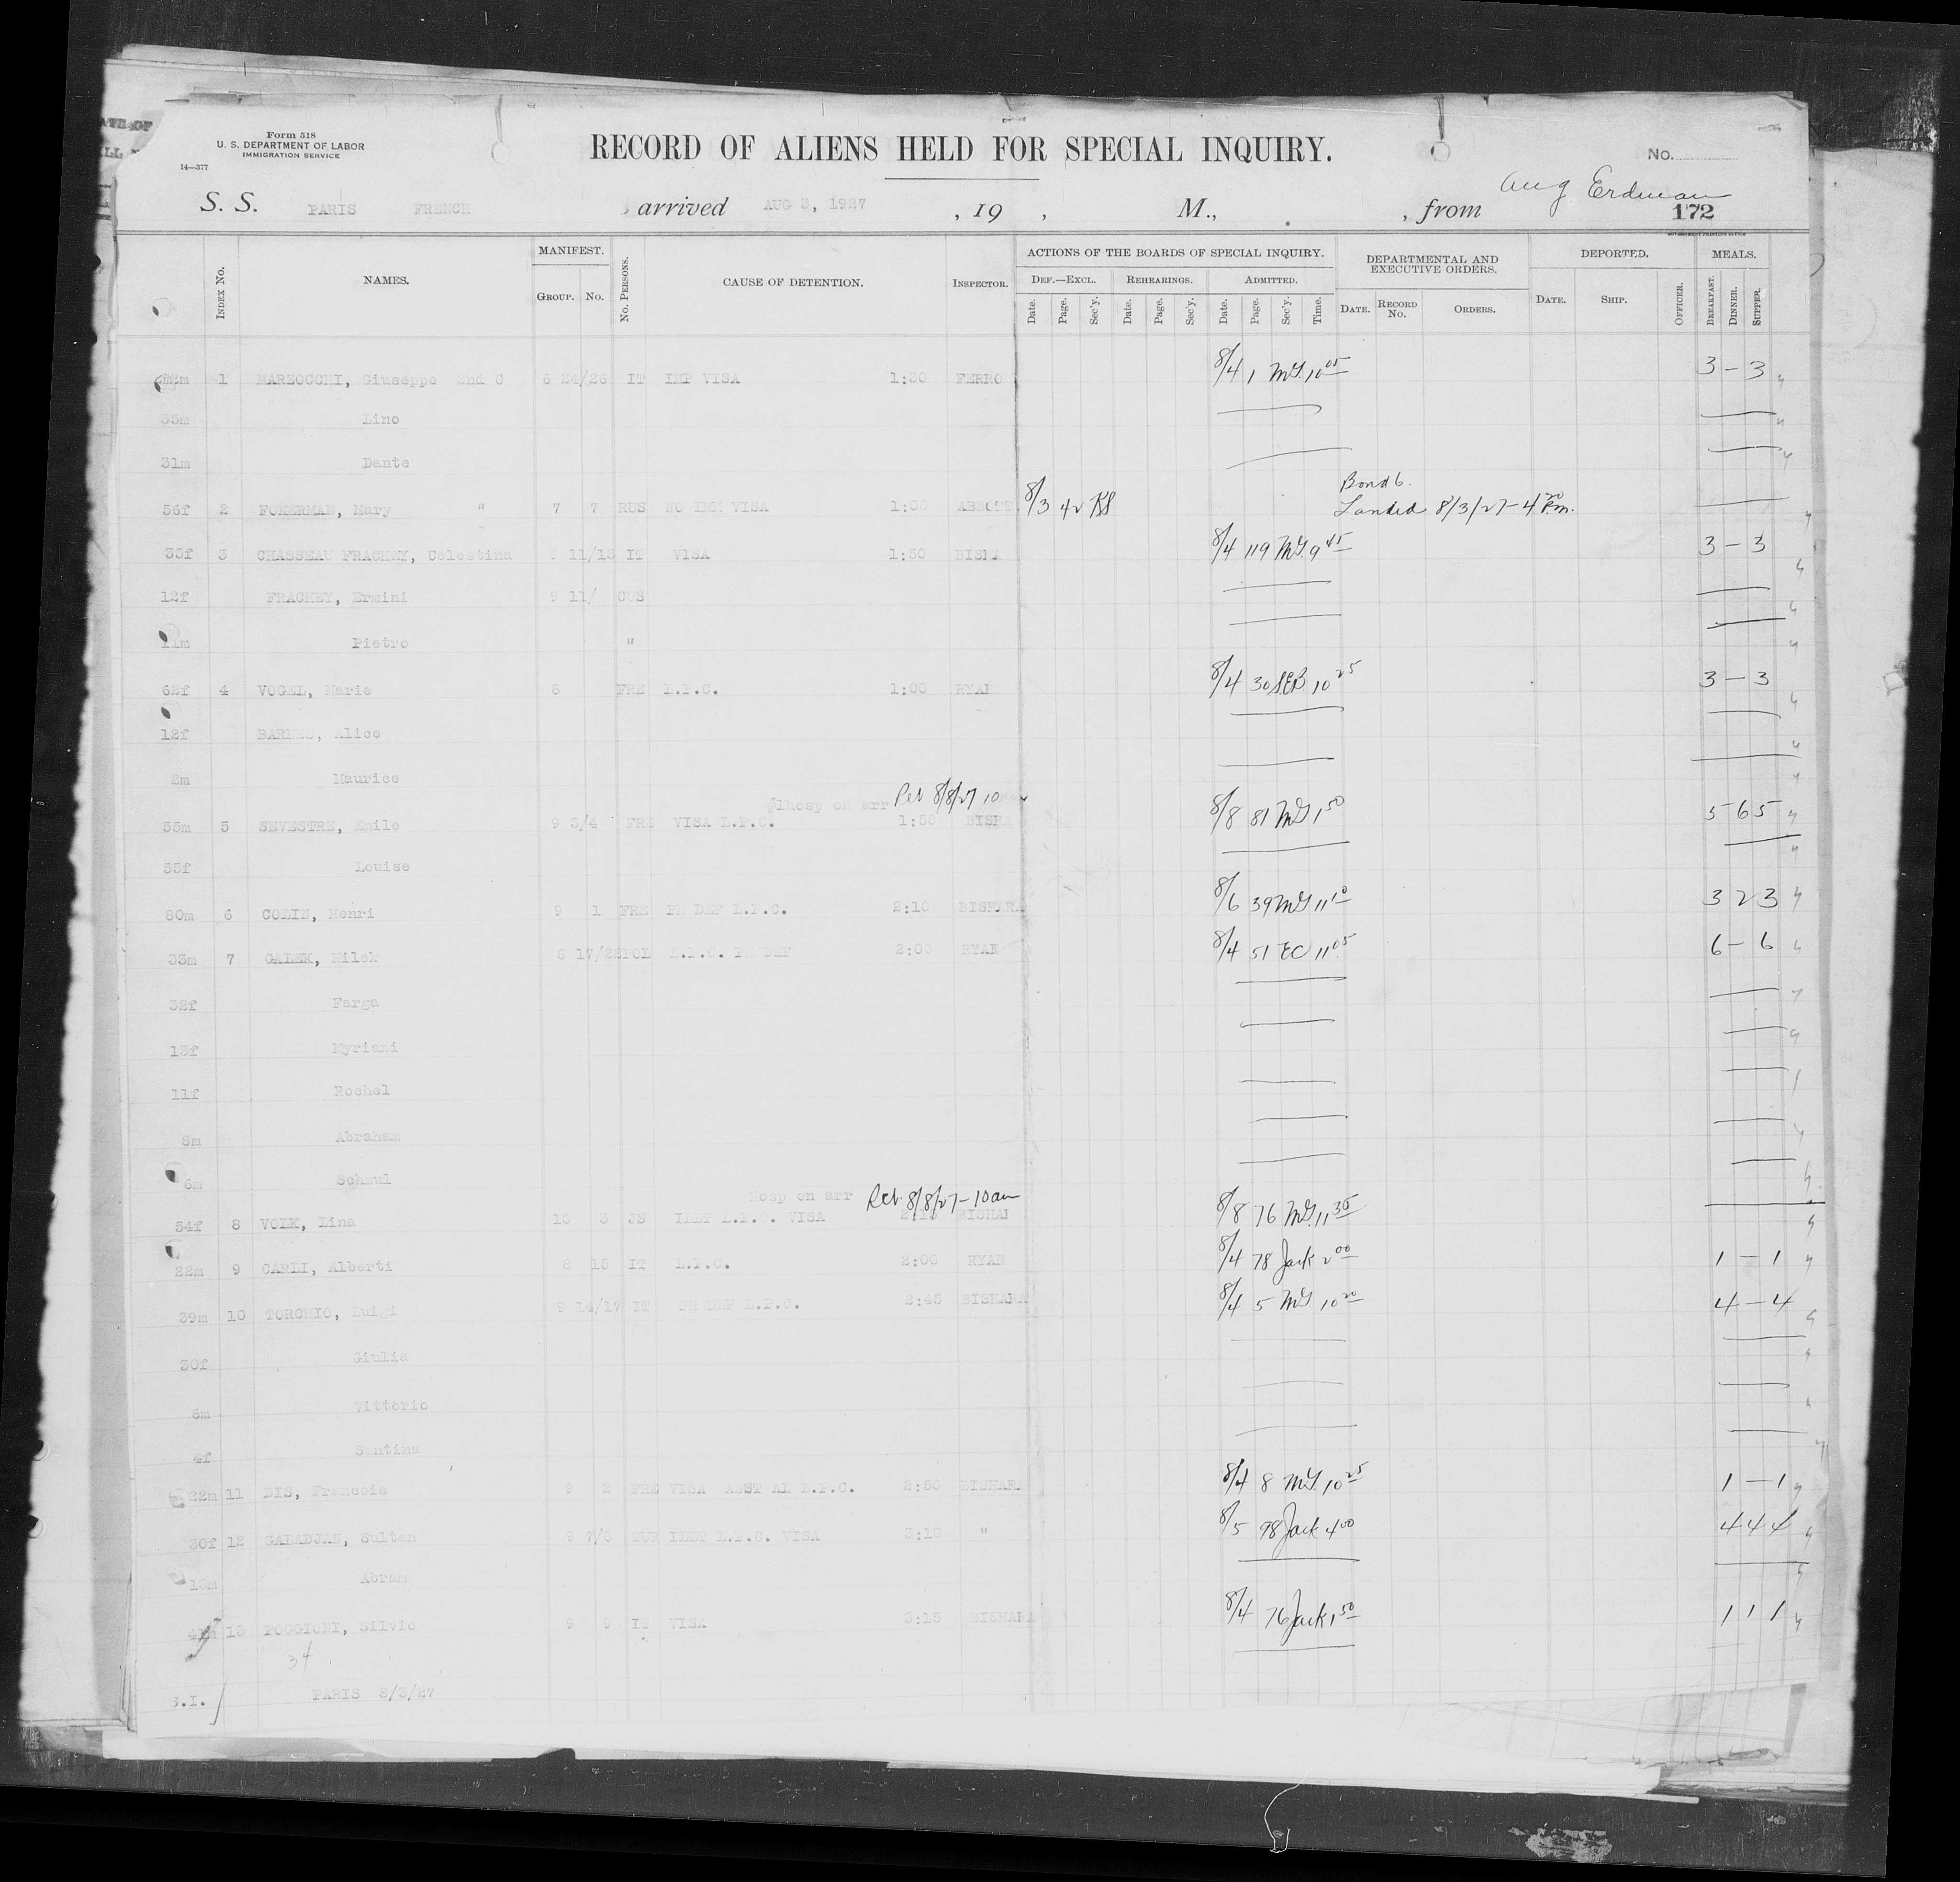 Form 518
U. S. DEPARTMENT OF LABOR
IMMIGRATION SERVICE
14—377
RECORD OF ALIENS HELD FOR SPECIAL INQUIRY.
No.
Aug Erdman
172
S. S. PARIS FRENCH arrived AUG 3, 1927 , 19 , M., , from
INDEX No. NAMES. MANIFEST. GROUP. No. No. PERSONS. CAUSE OF DETENTION. INSPECTOR. ACTIONS OF THE BOARDS OF SPECIAL INQUIRY. DEF.—EXCL. Date. Page. Sec'y. REHEARINGS. Date. Page. Sec'y. ADMITTED. Date. Page. Sec'y. Time. DEPARTMENTAL AND EXECUTIVE ORDERS. DATE. RECORD No. ORDERS. DEPORTED. DATE. SHIP. OFFICER. MEALS. BREAKFAST. DINNER. SUPPER.
1 MARZOCCHI, Giuseppe 2nd C 6 24/26 IT VISA 1:30 FERRO 8/4 1 MG 10 05 3 – 3
35m Lino
31m Dante
Bond 6.
56f 2 FOKERMAN, Mary " 7 7 RUS NO IMM VISA 1:00 ABBOTT 8/3 42 KS Landed 8/3/27 – 4 20 P.m.
35f 3 CHASSEAU FRACHEY, Celestina 9 11/13 IT VISA 1:50 8/4 119 MG 9 45 3 – 3
12f FRACHEY, Ermini 9 11/ CUS
11m Pietro "
62f 4 VOGEL, Marie 8 FRE L.P.C. 1:00 RYAN 8/4 30 SEB 10 25 3 – 3
12f BARNES, Alice
2m Maurice
hosp on arr Ret 8/8/27 10
55m 5 SEVESTRE, Emile 9 3/4 FRE VISA L.P.C. 1:50 8/8 81 MG 1 50 5 6 5
55f Louise
80m 6 COLIN, Henri 9 1 FRE PH DEF L.P.C. 2:10 BISHARA 8/6 39 MG 11 10 3 2 3
33m 7 GALEK, Milek 8 17/22 POL L.P.C. PH DEF 2:00 RYAN 8/4 51 EC 11 05 6 – 6
32f Farga
13f Myriani
11f Rochel
8m Abraham
6m Schmul
Hosp on arr Ret. 8/8/27 – 10 am
54f 8 VOLK, Lina 10 3 ILLT L.P.C. VISA 8/8 76 MG 11 35
22m 9 CARLI, Alberti 8 15 IT L.P.C. 2:00 RYAN 8/4 78 Jack 2 00 1 – 1
39m 10 TORCHIO, Luigi 9 14/17 IT PH DEF L.P.C. 2:45 BISHARA 8/4 5 MG 10 20 4 – 4
30f Giulia
6m Vittorio
4f Santina
22m 11 DIS, Francois 9 2 FRE VISA ASST AL L.P.C. 2:50 BISHARA 8/4 8 MG 10 25 1 – 1
30f 12 GALADJAN, Sultan 9 7/8 TUR ILLT L.P.C. VISA 3:10 " 8/5 98 Jack 4 00 4 4 4
Abram
13 POGGIONI, Silvio 9 9 IT VISA 3:15 BISHARA 8/4 76 Jack 1 50 1 1 1
34
S.I. PARIS 8/3/27